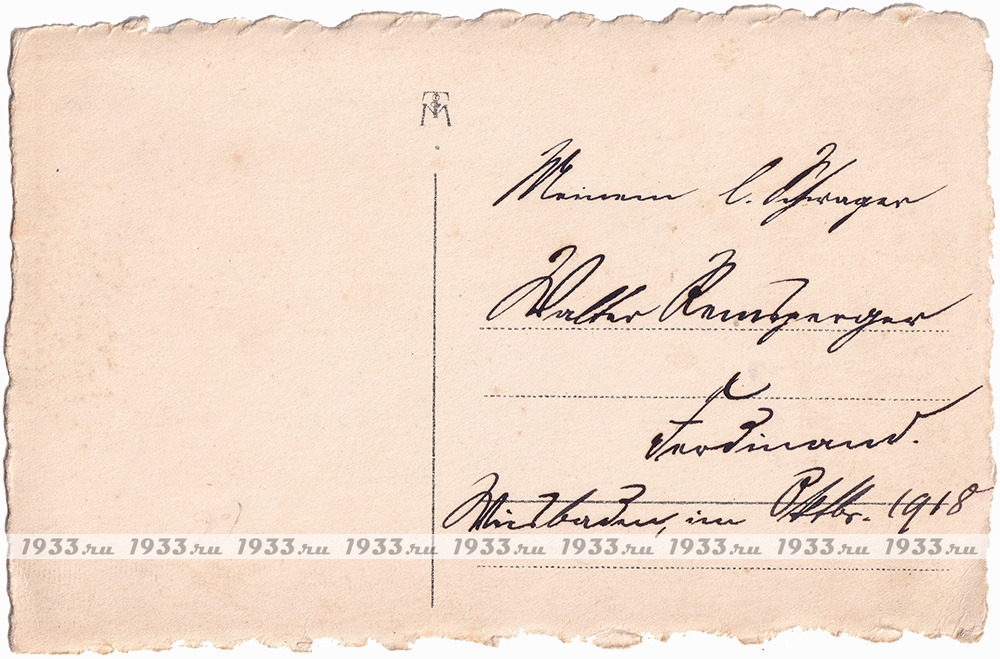 Meinem l. Schwager
Walter Remsperger
Ferdinand.
Wiesbaden, im Oktbr. 1918
1933.ru 1933.ru 1933.ru 1933.ru 1933.ru 1933.ru 1933.ru 1933.ru 1933.ru